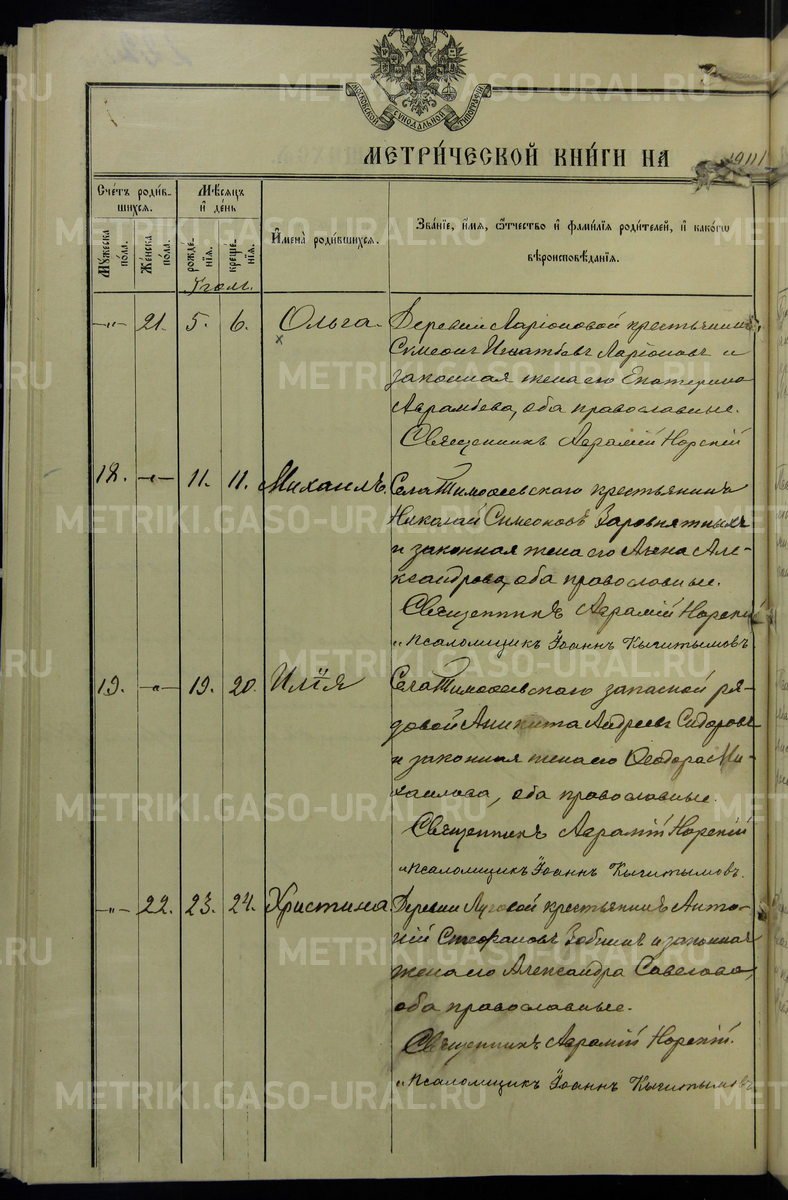 МОСКОВСКОЙ СѴНОДАЛЬНОЙ ТИПОГРАФІИ
METRIKI.GASO-URAL.RU
МЕТРИ́ЧЕСКОЙ КНИ́ГИ НА 1911
Сче́тъ роди́в-
шихся.
Му́жеска по́ла.
Же́нска по́ла.
Мѣ́сяцъ и де́нь
рожде́-
нія.
креще́-
нія.
И҆мена̀ роди́вшихся.
Зва́ніе, и҆́мя, ѻ҆́тчество и҆ фами́лія роди́телей, и҆ како́гѡ
вѣроисповѣ́данія.
Іюль.
-„- 21. 5. 6. Ольга. Деревни Ларіоновой крестьянинъ
Симеонъ Игнатьевъ Ларіоновъ и
законная жена его Екатерина
Аврамьева, оба православные.
Священникъ Аврамій Норскій
18. -„- 11. 11. Михаилъ. Села Тимофеевскаго крестьянинъ
Николай Симеоновъ Заровнятныхъ
и законная жена его Але-
ксандрова, оба православные.
Священникъ Аврамій Норскій
„ псаломщикъ Іоаннъ Кычитымовъ
19. -„- 19. 20. Илія Села Тимофеевскаго запасной ря-
довой Аникита Андреевъ Сидоровъ
и законная жена его Ѳеодора Ми-
хаилова, оба православные.
Священникъ Аврамій Норскій
„ псаломщикъ Іоаннъ Кычитымовъ.
-„- 22. 23. 24. Христина. Деревни Луговой крестьянинъ Анто-
ній Стефановъ Зобнинъ и законная
жена его Александра Савелова,
оба православные.
Священникъ Аврамій Норскій.
„ псаломщикъ Іоаннъ Кычитымовъ